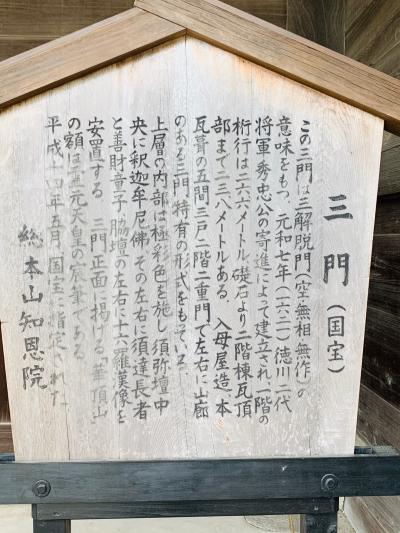 三門（国宝）
この三門は三解脱門（空・無相・無作）の
意味をもつ。元和七年（一六二一）徳川二代
将軍秀忠公の寄進によって建立され、一階の
桁行は二六・六メートル、礎石より二階棟瓦頂
部まで二三・八メートルある。入母屋造、本
瓦葺の五間三戸二階二重門で左右に山廊
のある三門特有の形式をもっている。
上層の内部は極彩色を施し須弥壇中
央に釈迦牟尼佛、その左右に須達長者
と善財童子、脇壇の左右に十六羅漢像を
安置する。三門正面に掲げる「華頂山」
の額は霊元天皇の宸筆である。
平成十四年五月、国宝に指定された。
総本山知恩院